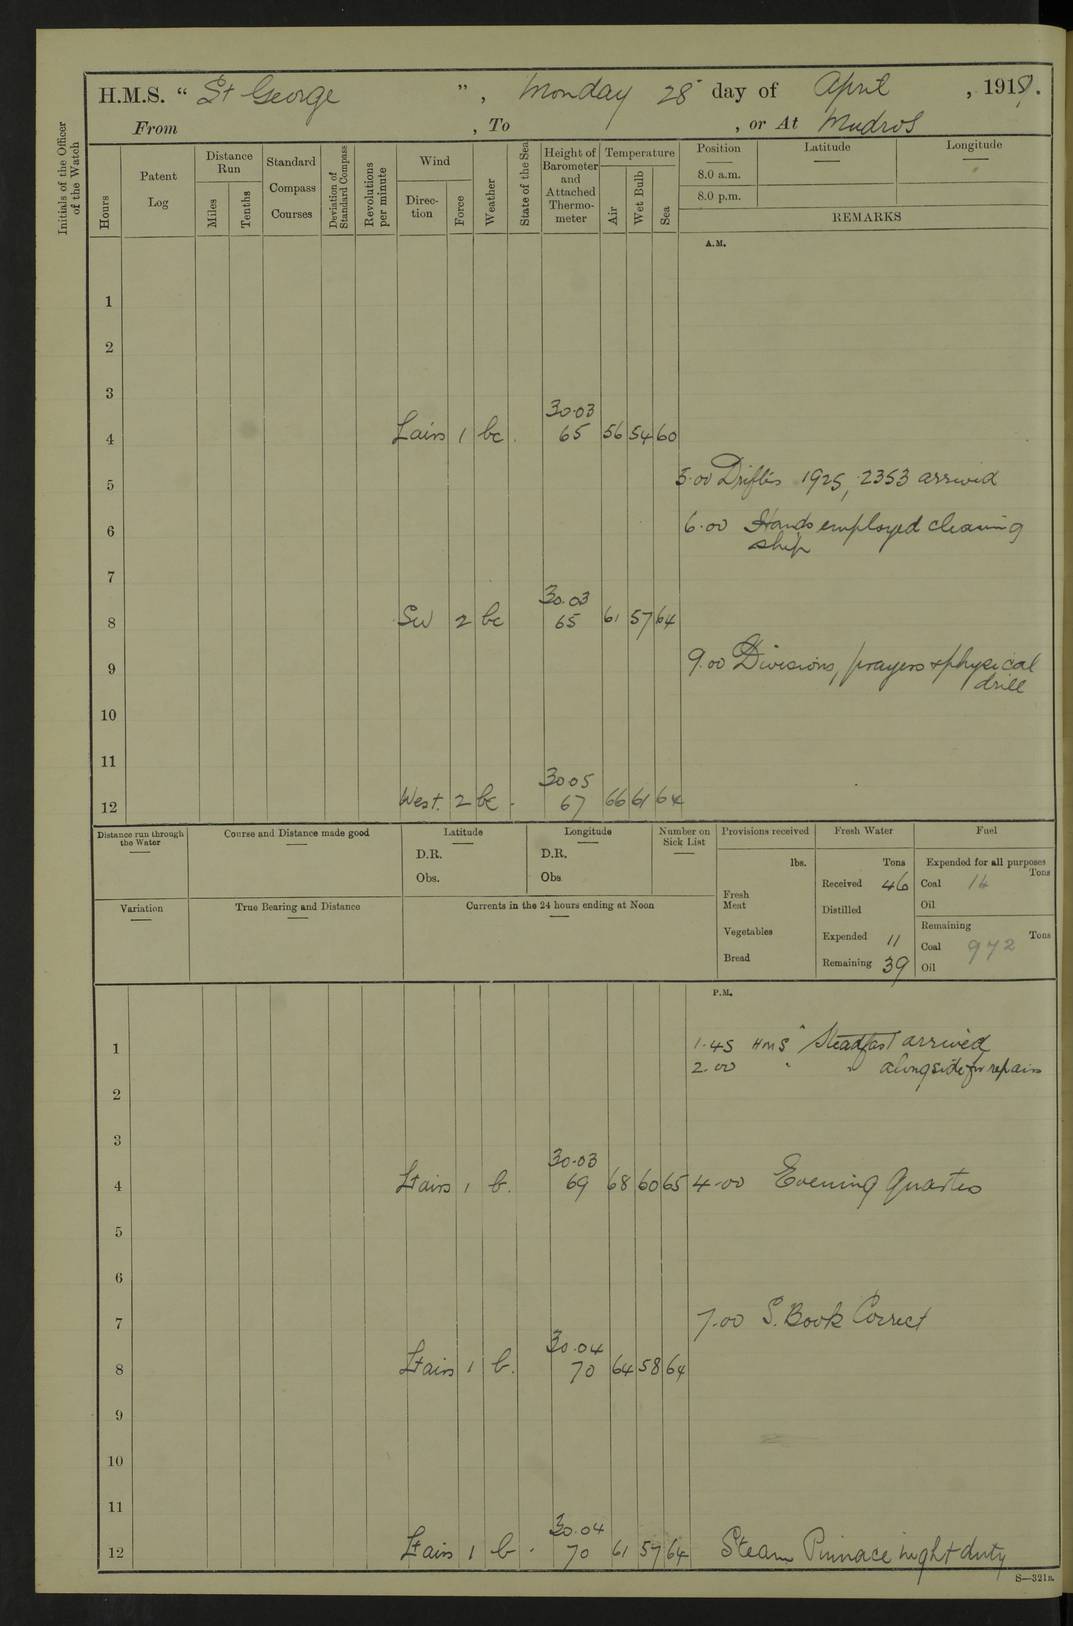 H.M.S. “ St George ” , Monday 28 day of April , 1919.
From , To , or At Mudros
Initials of the Officer of the Watch
Hours
Patent Log
Distance Run
Miles
Tenths
Standard Compass Courses
Deviation of Standard Compass
Revolutions per minute
Wind
Direction
Force
Weather
State of the Sea
Height of Barometer and Attached Thermometer
Temperature
Air
Wet Bulb
Sea
Position
8.0 a.m.
8.0 p.m.
Latitude
Longitude
REMARKS
A.M.
1
2
3
30.03
4 Lairs 1 bc 65 56 54 60
5 5.00 Drifters 1925, 2353 arrived
6 6.00 Hands employed cleaning
ship
7
30.03
8 SW 2 bc 65 61 57 64
9 9.00 Divisions, prayers & physical
drill
10
11
30.05
12 West. 2 bc 67 66 61 64
Distance run through the Water
Course and Distance made good
Latitude
D.R.
Obs.
Longitude
D.R.
Obs
Number on Sick List
Provisions received
lbs.
Fresh Meat
Vegetables
Bread
Fresh Water
Tons
Received 46
Distilled
Expended 11
Remaining 39
Fuel
Expended for all purposes
Tons
Coal 14
Oil
Remaining
Tons
Coal 972
Oil
Variation
True Bearing and Distance
Currents in the 24 hours ending at Noon
P.M.
1 1.45 HMS "Steadfast" arrived
2.00 " " alongside for repairs
2
3
30.03
4 Lt airs 1 b. 69 68 60 65 4.00 Evening Quarters
5
6
7 7.00 S. Book Correct
30.04
8 Lt airs 1 b. 70 64 58 64
9
10
11
30.04
12 Lt airs 1 b. 70 61 57 64 Steam Pinnace night duty
S—321B.